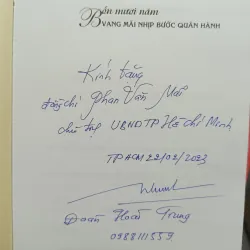 Bốn mươi năm
VANG MÃI NHỊP BƯỚC QUÂN HÀNH
Kính tặng
đồng chí Phan Văn Mãi
chủ tịch UBND TP Hồ Chí Minh
TP HCM 22/02/2023
Đoàn Hoài Trung
0988111559